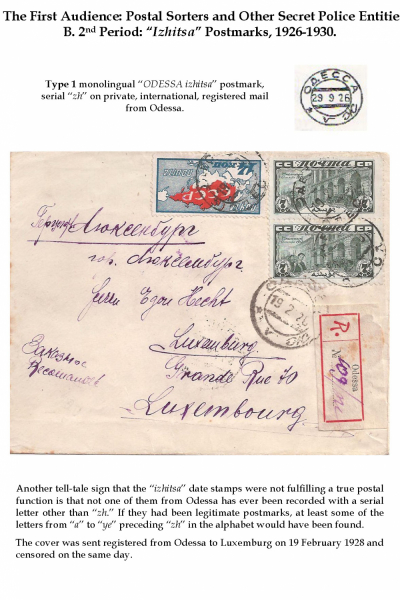 The First Audience: Postal Sorters and Other Secret Police Entitie
B. 2nd Period: “Izhitsa” Postmarks, 1926-1930.
Type 1 monolingual “ODESSA izhitsa” postmark,
serial “zh” on private, international, registered mail
from Odessa.
ОДЕССА
29 9 26
СССР
ПОЧТА
ПОЧТА
Люксембург
гор. Люксембург
Herrn Egon Hecht
Luxemburg
Grande Rue 70
Luxembourg
Заказное
19 2 2
R.
Odessa
№
Another tell-tale sign that the “izhitsa” date stamps were not fulfilling a true postal
function is that not one of them from Odessa has ever been recorded with a serial
letter other than “zh.” If they had been legitimate postmarks, at least some of the
letters from “a” to “ye” preceding “zh” in the alphabet would have been found.
The cover was sent registered from Odessa to Luxemburg on 19 February 1928 and
censored on the same day.